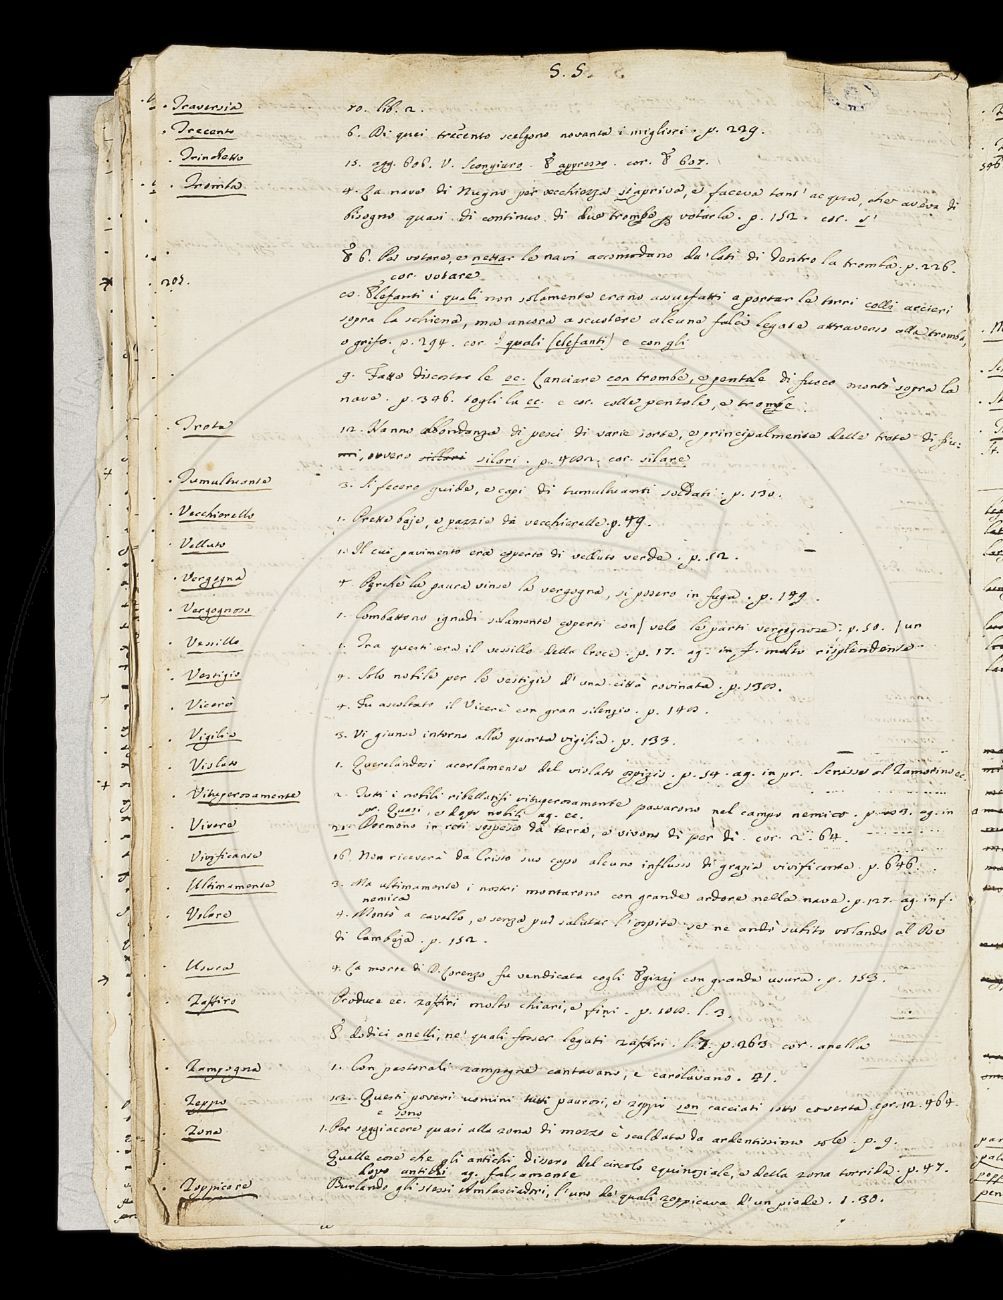 S. S.
Traversia 10. lib. 2.
Trecento 6. Di quei trecento scelgono novanta i migliori. p. 229.
Trinchetto 15. agg. 606. V. Scongiuro. appresso. cor. 607.
Tromba 4. La nave di Nugno per vecchiezza s'apriva, e faceva tant' acqua, che aveva di
bisogno quasi di continuo di due trombe votarla. p. 152. cor.
6. Per votare, e nettar le navi accomodano da' lati di dentro la tromba. p. 226.
cor. votare
Elefanti i quali non solamente erano assuefatti a portar le torri colli arcieri
sopra la schiena, ma ancora a scuotere alcune falci legate attraverso alla tromba,
o grifo. p. 294. cor. quali (elefanti) e con gli
9. Fatto discostar le ec. lanciare con trombe, e pentole di fuoco montò sopra la
nave. p. 346. togli la ec. e cor. colle pentole, e trombe
Trota 12. Hanno abbondanza di pesci di varie sorte, e principalmente delle trote di fiu-
mi, ovvero silari. p. cor. silare
Tumultuante 3. Si fecero guide, e capi di tumultuanti soldati. p. 130.
Vecchierello 1. Prette baje, e pazzie da vecchierelle. p. 49.
Velluto 1. Il cui pavimento era coperto di velluto verde. p. 52.
Vergogna 4. Perchè la paura vinse la vergogna, si posero in fuga. p. 149.
Vergognoso 1. Combattono ignudi solamente coperti con / velo le parti vergognose. p. 50. / un
Vessillo 1. Tra questi era il vessillo della Croce. p. 17. ag. in f. molto risplendente
Vestigio 4. Solo nobile per lo vestigio d' una città rovinata. p.
Vicerè 4. Fu ascoltato il Vicerè con gran silenzio. p.
Vigilia 3. Vi giunse intorno alla quarta vigilia. p. 133.
Violato 1. Querelandosi acerbamente del violato ospizio. p. 54. ag. in pr. Scrisse al Zamorino ec.
Vituperosamente 2. Tutti i nobili ribellatisi vituperosamente passarono nel campo nemico. p. ag. in
pr. Quasi, e dopo nobili ag. ec.
Vivere Dormono in reti sospese da terra, e vivono dì per dì cor. 2. 64.
Vivificante 16. Non riceverà da Cristo suo capo alcuno influsso di grazia vivificante. p. 646.
Ultimamente 3. Ma ultimamente i nostri montarono con grande ardore nella nave. p. 127. ag. in f.
nemica
Volare 4. Montò a cavallo, e senza pur salutar l' ospite se ne andò subito volando al Re
di Cambaja. p. 152.
Usura 4. La morte di D. Lorenzo fu vendicata cogli Egizzj con grande usura. p. 153.
Zaffiro Produce ec. zaffiri molto chiari, e fini. p. l. 3.
dodici anelli, ne' quali fosser legati zaffiri. l. 7. p. 263 cor. anella
Zampogna 1. Con pastorali zampogne cantavano, e carolavano. 41.
Zeppo Questi poveri uomini tutti paurosi, e zeppi son cacciati sotto coverta. cor. 12. 464.
e sono
Zona 1. Per soggiacere quasi alla zona di mezzo è scaldata da ardentissimo sole. p. 9.
Quelle cose che gli antichi dissero del circolo equinoziale, e della zona torrida. p. 47.
dopo antichi ag. falsamente
Zoppicare Burlando gli stessi Ambasciadori, l' uno de' quali zoppicava d' un piede. 1. 30.